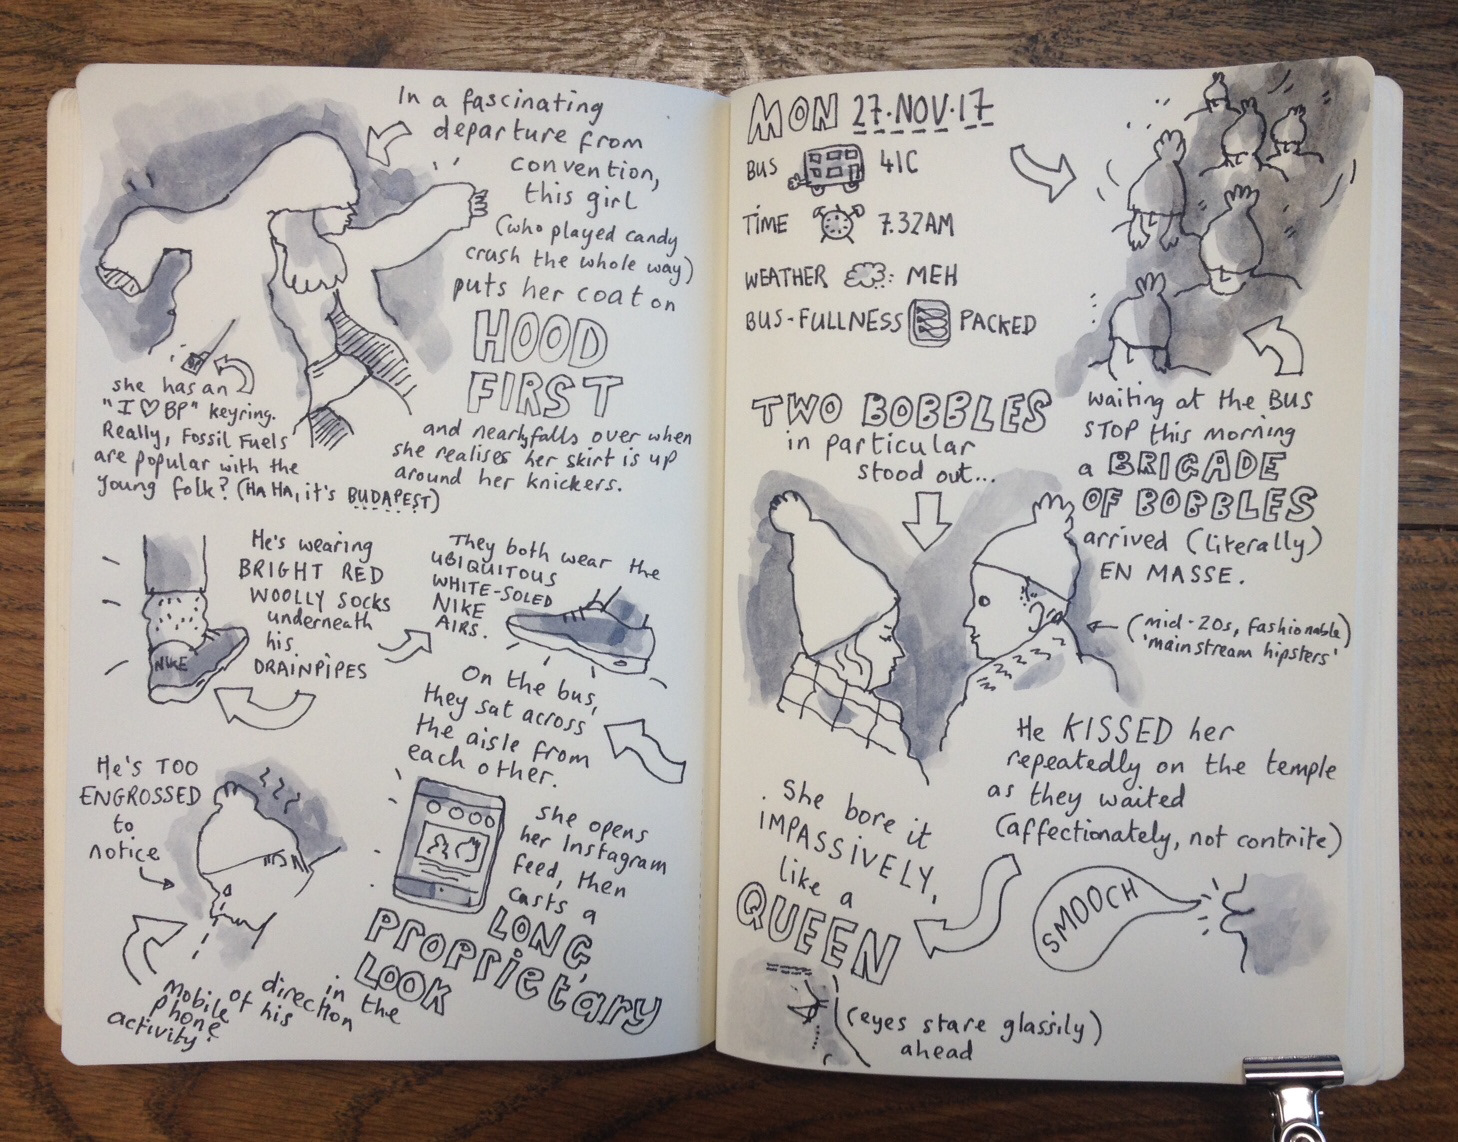 In a fascinating
departure from
convention,
this girl
(who played candy
crush the whole way)
puts her coat on
HOOD
FIRST
and nearly falls over when
she realises her skirt is up
around her knickers.
she has an
"I ♡ BP" keyring.
Really, Fossil Fuels
are popular with the
young folk? (HA HA, it's BUDAPEST)
He's wearing
BRIGHT RED
WOOLLY SOCKS
underneath
his
DRAINPIPES
NIKE
They both wear the
UBIQUITOUS
WHITE-SOLED
NIKE
AIRS.
On the bus,
they sat across
the aisle from
each other.
she opens
her Instagram
feed, then
casts a
LONG,
PROPRIETARY
LOOK
in the
direction
of his
mobile
phone
activity.
He's TOO
ENGROSSED
to
notice
MON 27·NOV·17
BUS 41C
TIME 7.32AM
WEATHER : MEH
BUS-FULLNESS PACKED
waiting at the BUS
STOP this morning
a BRIGADE
OF BOBBLES
arrived (literally)
EN MASSE.
TWO BOBBLES
in particular
stood out...
(mid-20s, fashionable)
'mainstream hipsters'
He KISSED her
repeatedly on the temple
as they waited
(affectionately, not contrite)
SMOOCH
She bore it
IMPASSIVELY,
like a
QUEEN
(eyes stare glassily)
ahead